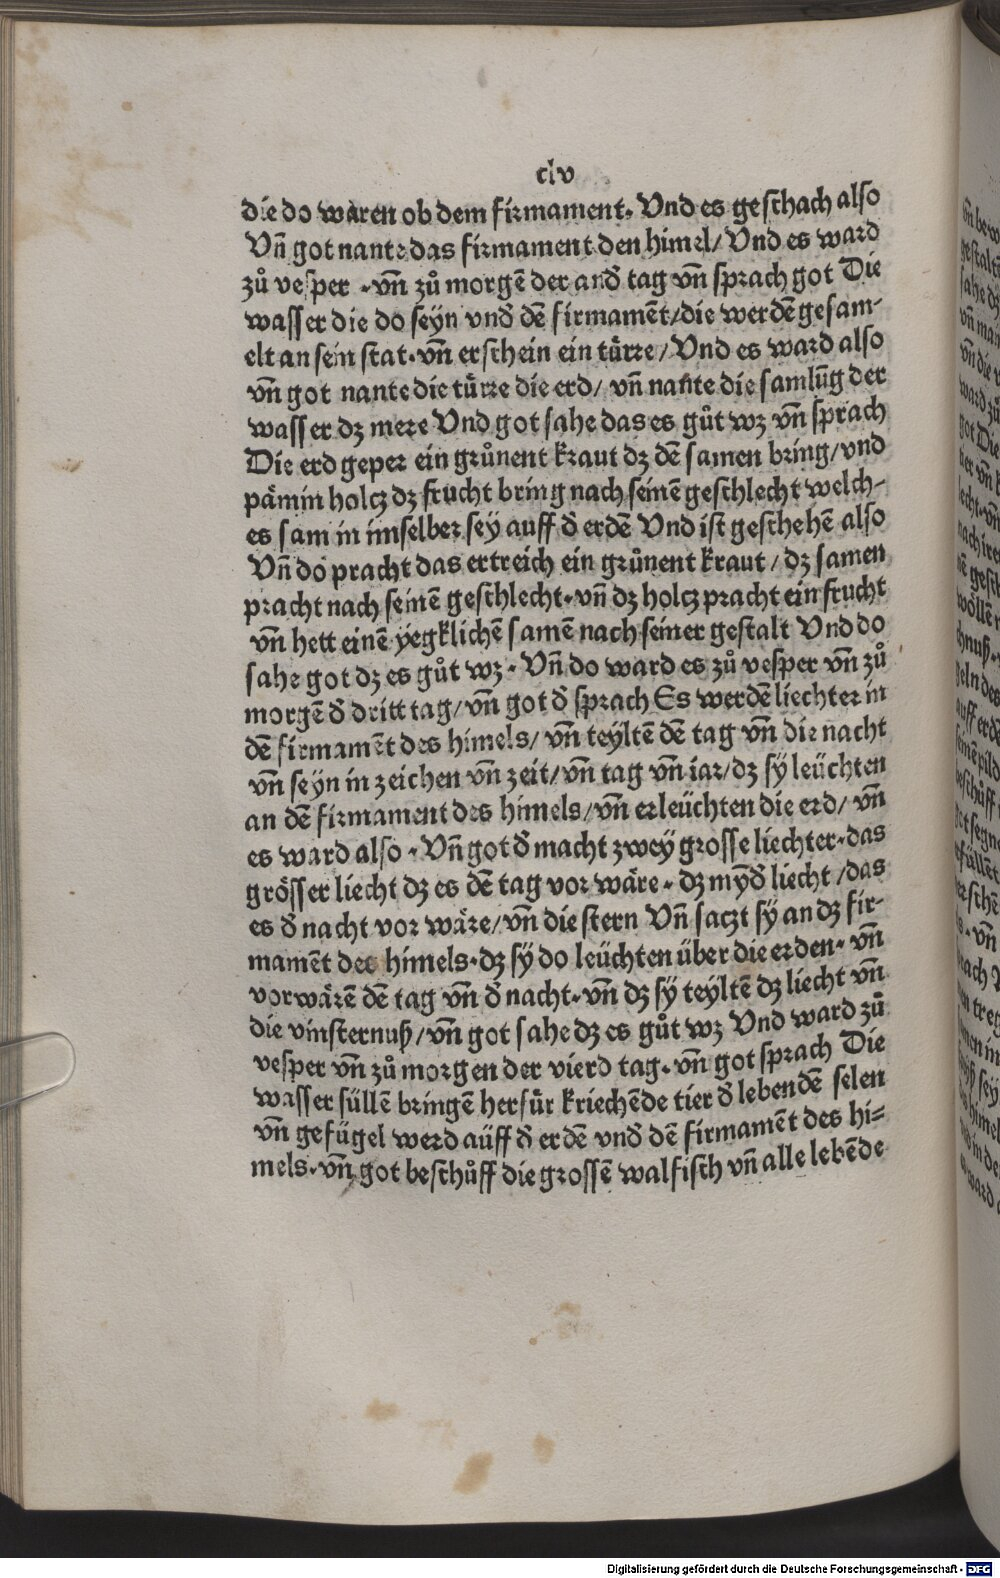 clv
die do waren ob dem firmament. Vnd es geschach also
Vn̄ got nante das firmament den himel/ Vnd es ward
zů vesper .vn̄ zů morgē der and̄ tag vn̄ sprach got Die
wasser die do seyn vnd̄ dē firmamēt/die werdē gesam-
elt an sein stat.vn̄ erschein ein türre/ Vnd es ward also
vn̄ got nante die türre die erd/ vn̄ nante die samlūg der
wasser dz mere Vnd got sahe das es gůt wz vn̄ sprach
Die erd geper ein grůnent kraut dz dē samen bring/vnd
pämin holcz dz frucht bring nach seinē geschlecht welch-
es sam in imselber sey auff d̄ erdē Vnd ist geschehē also
Vn̄ do pracht das ertreich ein grůnent kraut/ dz samen
pracht nach seinē geschlecht.vn̄ dz holcz pracht ein frucht
vn̄ hett einē yegklichē samē nach seiner gestalt Vnd do
sahe got dz es gůt wz. Vn̄ do ward es zů vesper vn̄ zů
morgē d̄ dritt tag/ vn̄ got d̄ sprach Es werdē liechter in
dē firmamēt des himels/ vn̄ teyltē dē tag vn̄ die nacht
vn̄ seyn in zeichen vn̄ zeit/vn̄ tag vn̄ iar/dz sÿ leüchten
an dē firmament des himels/vn̄ erleüchten die erd/ vn̄
es ward also. Vn̄ got d̄ macht zwey grosse liechter.das
grösser liecht dz es dē tag vor wäre. dz mȳd̄ liecht/das
es d̄ nacht vor wäre/vn̄ die stern Vn̄ saczt sÿ an dz fir-
mamēt des himels.dz sÿ do leüchten über die erden. vn̄
vorwärē dē tag vn̄ d̄ nacht.vn̄ dz sÿ teyltē dz liecht vn̄
die vinsternuß/vn̄ got sahe dz es gůt wz Vnd ward zů
vesper vn̄ zů morgen der vierd tag.vn̄ got sprach Die
wasser süllē bringē herfür kriechēde tier d̄ lebendē selen
vn̄ gefügel werd aüff d̄ erdē vnd̄ dē firmamēt des hi-
mels.vn̄ got beschůff die grossē walfisch vn̄ alle lebēde
Digitalisierung gefördert durch die Deutsche Forschungsgemeinschaft - DFG